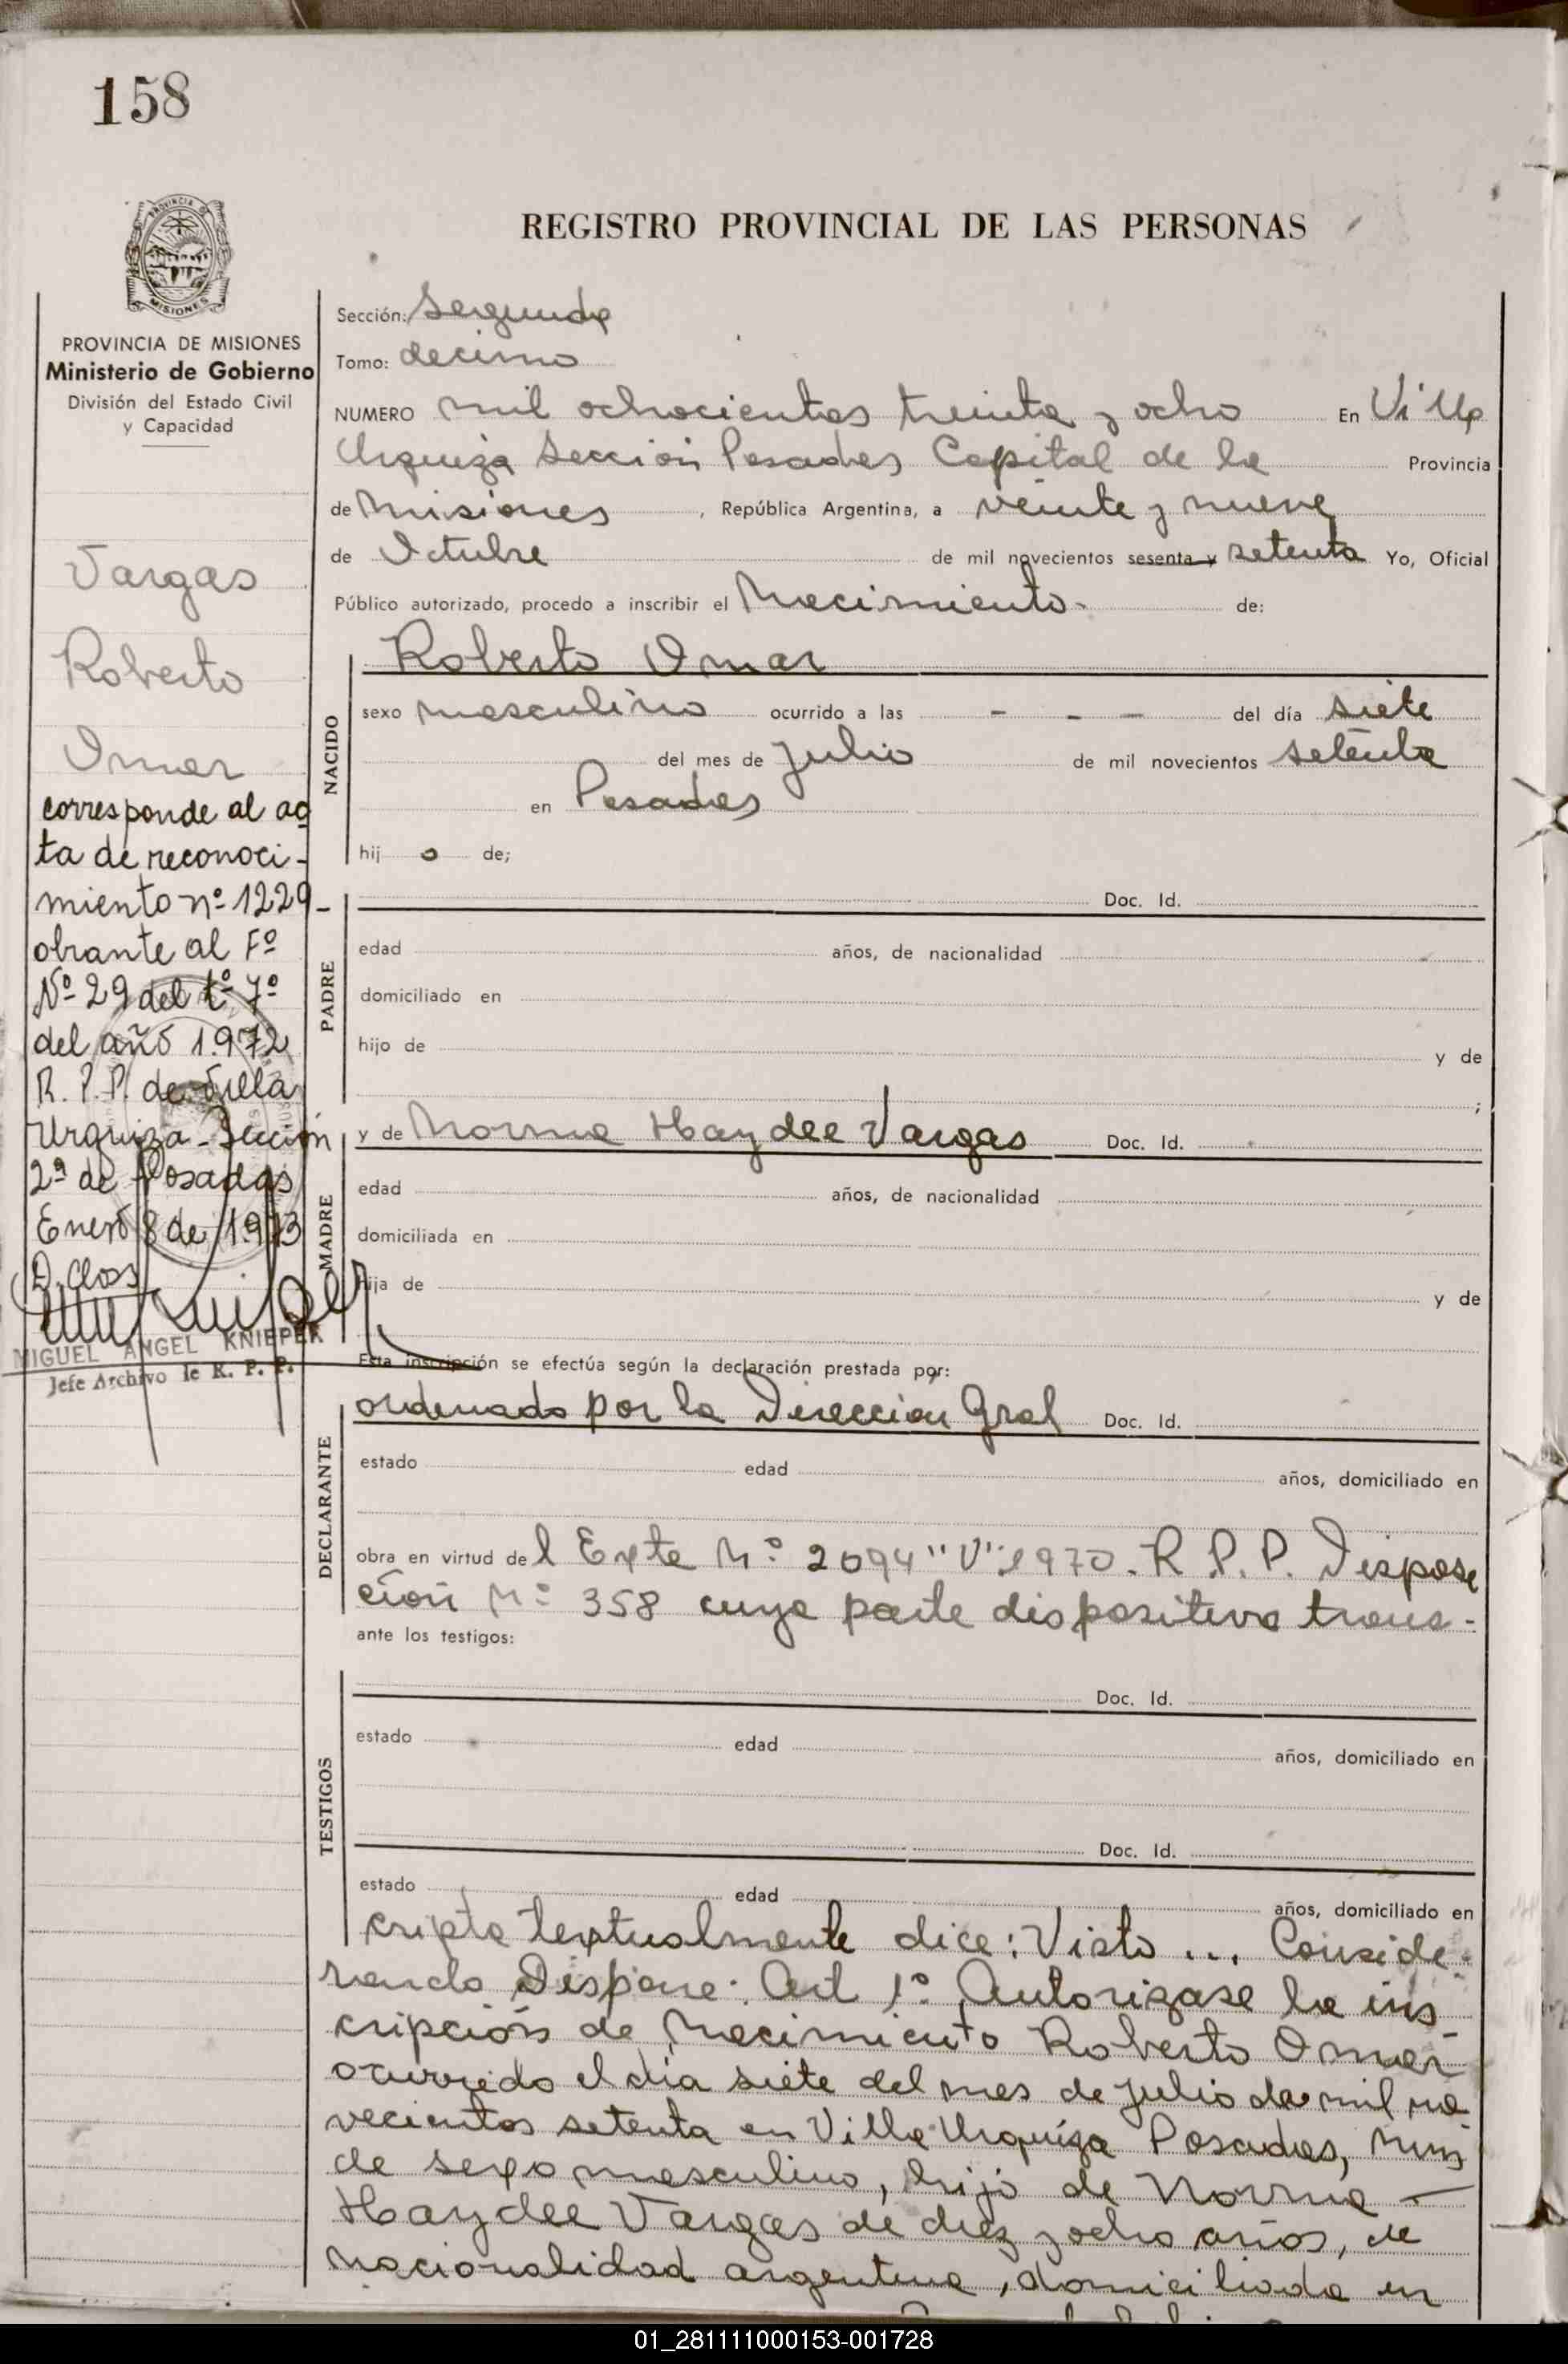 158
REGISTRO PROVINCIAL DE LAS PERSONAS
PROVINCIA MISIONES
PROVINCIA DE MISIONES
Ministerio de Gobierno
División del Estado Civil
y Capacidad
Vargas
Roberto
Omar
corresponde al ac
ta de reconoci-
miento nº 1229-
obrante al Fº
Nº 29 del tº 7º
del año 1.972
R. P. P. de Villa
Urquiza - Sección
2ª de Posadas
Enero 8 de 1.973
MIGUEL ANGEL KNIEPER
Jefe Archivo de R. P. P.
Sección: Segunda
Tomo: decimo
NUMERO mil ochocientos treinta y ocho En Villa
Urquiza Sección Posadas Capital de la Provincia
de Misiones, República Argentina, a veinte y nueve
de Octubre de mil novecientos sesenta y setenta Yo, Oficial
Público autorizado, procedo a inscribir el Nacimiento- de:
NACIDO
Roberto Omar
sexo masculino ocurrido a las - - - del día siete
del mes de Julio de mil novecientos setenta
en Posadas
hij o de;
PADRE
Doc. Id.
edad años, de nacionalidad
domiciliado en
hijo de y de
;
MADRE
y de Norma Haydee Vargas Doc. Id.
edad años, de nacionalidad
domiciliada en
hija de y de
Esta inscripción se efectúa según la declaración prestada por:
DECLARANTE
ordenado por la Dirección Gral Doc. Id.
estado edad años, domiciliado en
obra en virtud del Expte Nº 2094 "V" 1970. R. P. P. Disposi
ción Nº 358 cuya parte dispositiva trans-
ante los testigos:
TESTIGOS
Doc. Id.
estado edad años, domiciliado en
Doc. Id.
estado edad años, domiciliado en
cripta textualmente dice: Visto ... Conside-
rando Dispone: Art 1º Autorizase la ins
cripción de Nacimiento Roberto Omar
ocurrido el día siete del mes de Julio de mil no
vecientos setenta en Villa Urquiza Posadas,
de sexo masculino, hijo de Norma -
Haydee Vargas de diez y ocho años, de
nacionalidad argentina, domiciliada en
01_281111000153-001728